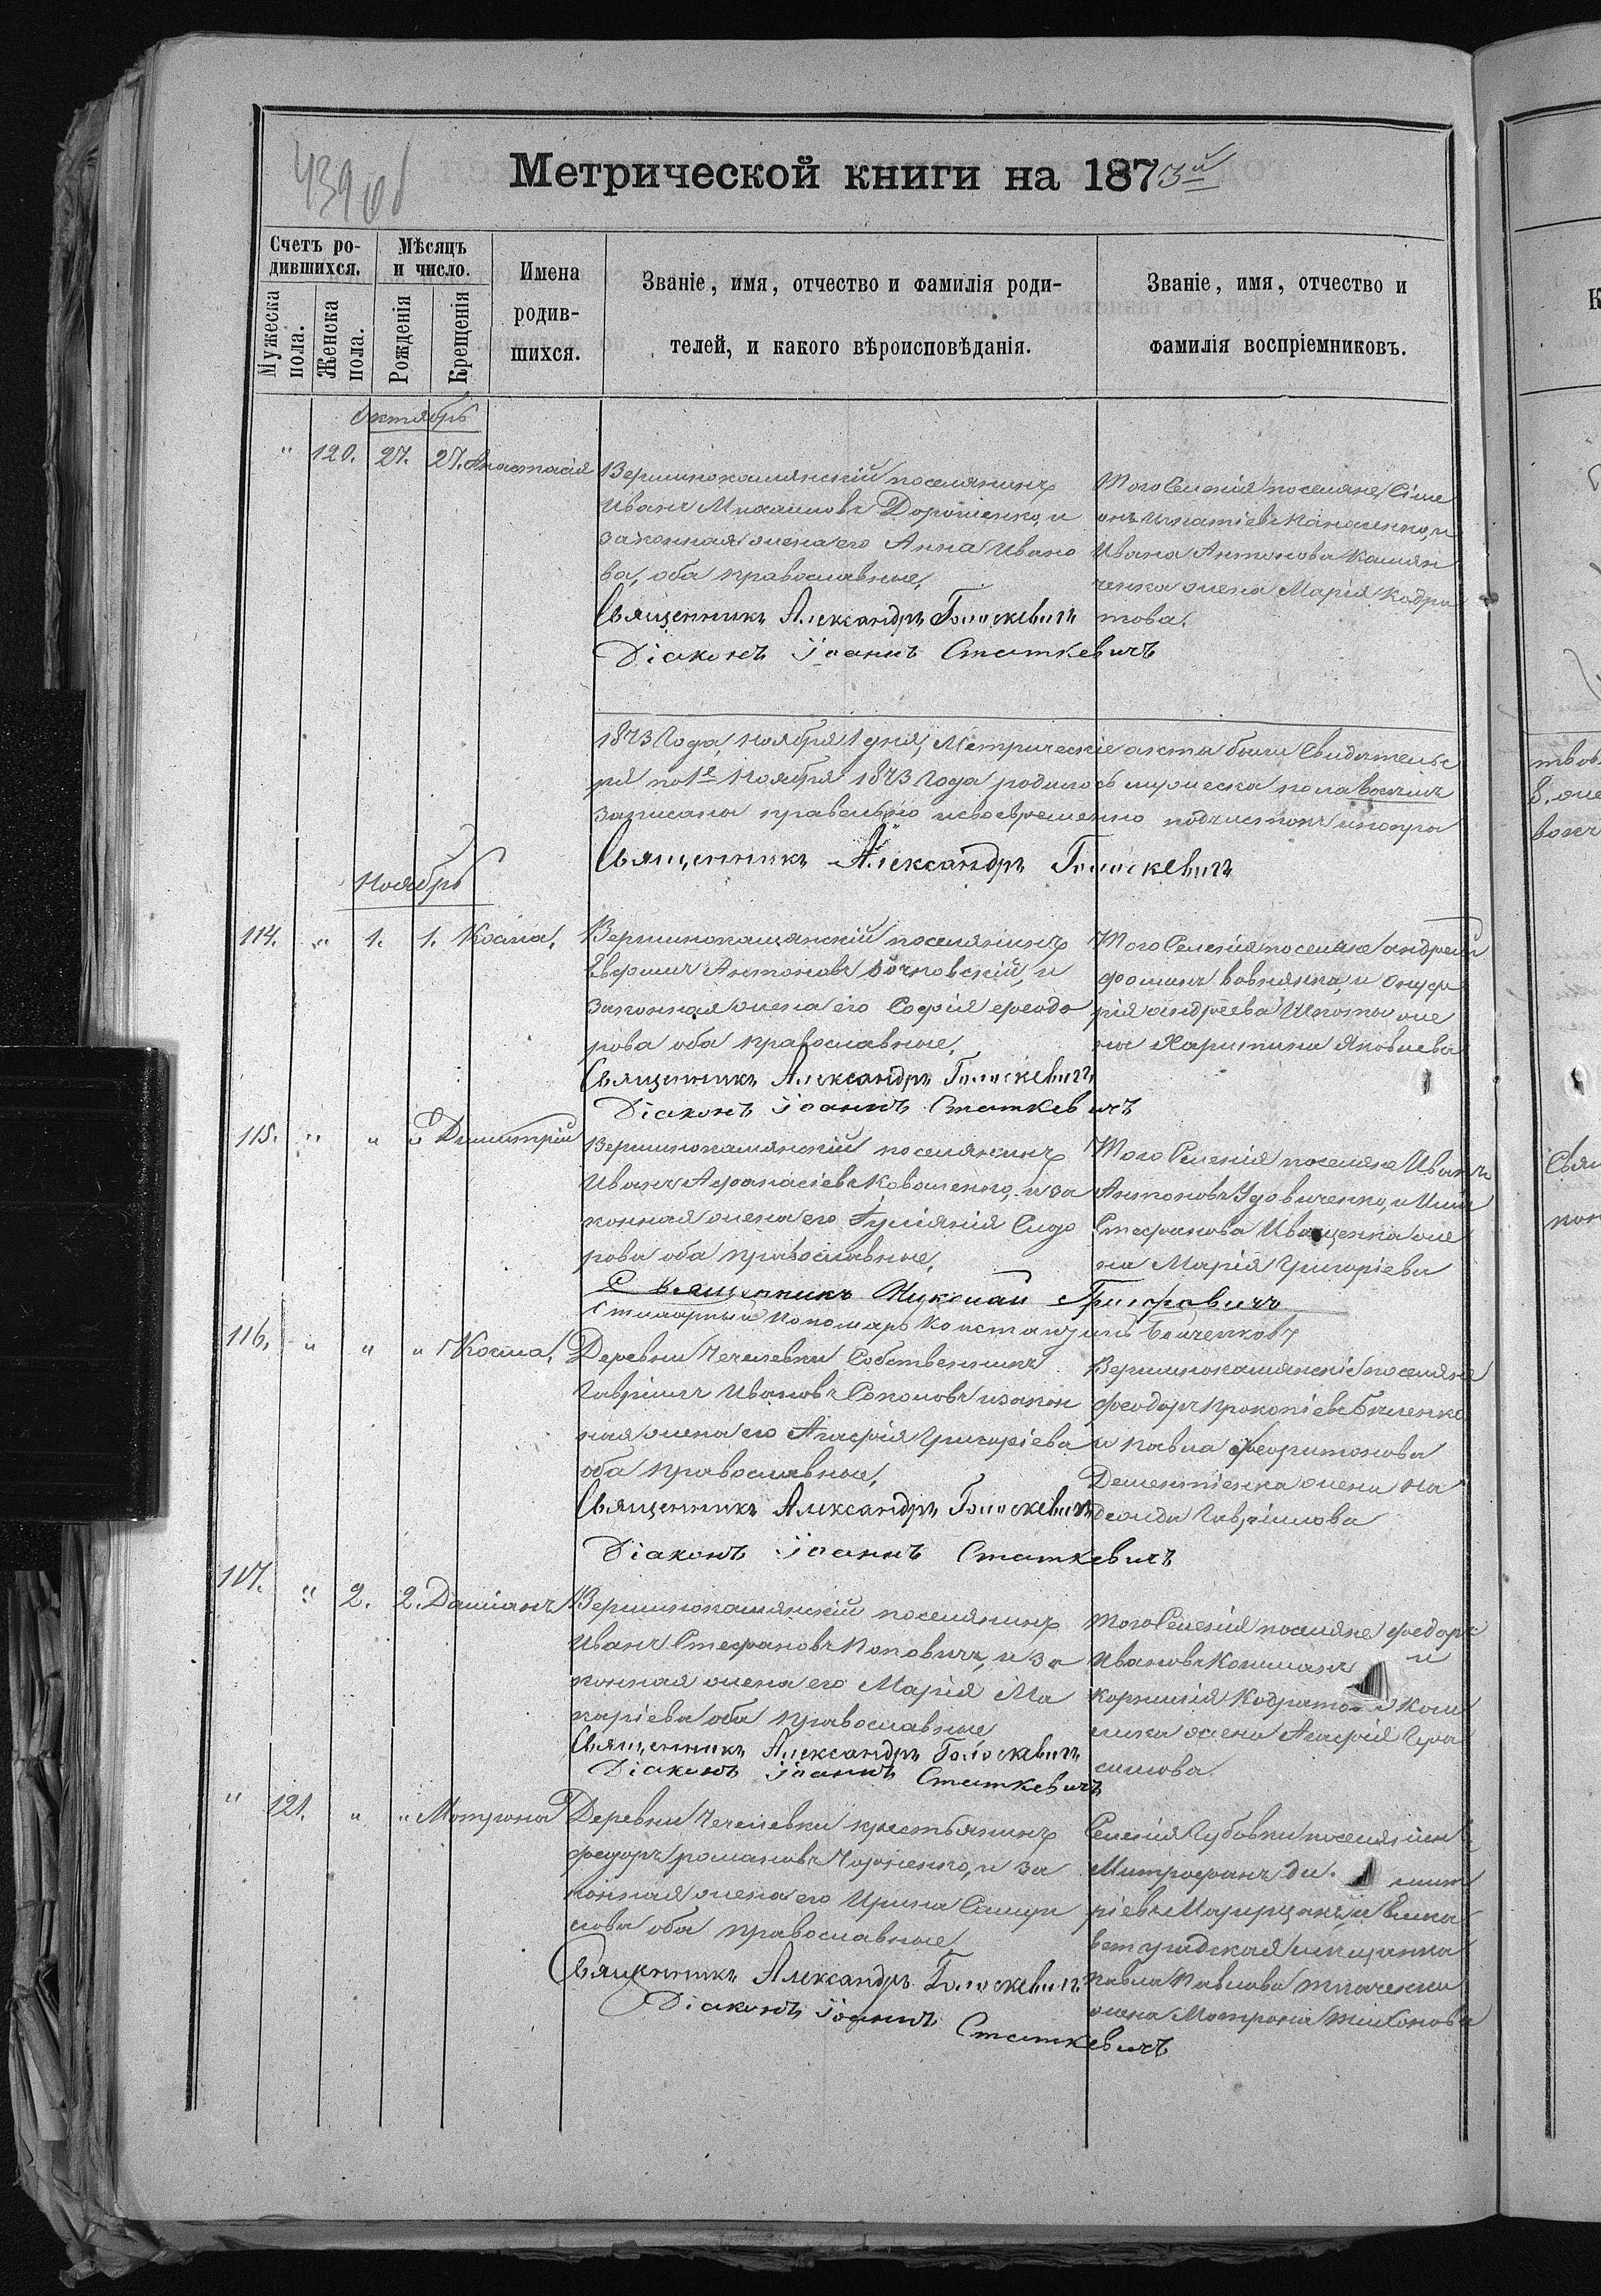 439 об
Метрической книги на 1873й
Счетъ ро-
дившихся.
Мѣсяцъ
и число.
Мужеска
пола.
Женска
пола.
Рожденія
Крещенія
Имена
родив-
шихся.
Званіе, имя, отчество и фамилія роди-
телей, и какого вѣроисповѣданія.
Званіе, имя, отчество и
фамилія воспріемниковъ.
Октябрь
" 120. 27. 27. Анастасія
Вершинокамянскій поселянинъ
Иванъ Михаиловъ Дорошенко, и
законная жена его Анна Ивано
ва, оба православные,
Священникъ Александръ Голоскевичъ
Діаконъ Іоаннъ Статкевичъ
Того Селенія поселяне Симе
онъ Игнатіевъ и
Ивана Антонова Камян
ченка жена Марія Кодра
това.
1873 Года, Ноября 1 дня, Метрическіе акты были Свидѣтельс
по 1е Ноября 1873 Года родилось мужеска пола
записаны правельно и своевременно подчистокъ и попра
Священникъ Александръ Голоскевичъ
Ноябрь
114. " 1. 1. Косма,
Вершинокамянскій поселянинъ
Антоновъ и
законная жена его Софія Феодо
рова оба православные,
Священникъ Александръ Голоскевичъ
Діаконъ Іоаннъ Статкевичъ
Того Селенія поселяне Андрей
Фоминъ и Онуф
рія Андреева Шпоты же
на Харитина Яковлева
115. " " " Димитрій
Вершинокамянскій поселянинъ
Иванъ Афанасіевъ Коваленко, и за
конная жена его Гуліянія Сидо
рова оба православные,
Священникъ Николай
Стихарный Пономарь Константинъ
Того Селенія поселяне Иванъ
Антоновъ Удовиченко, и
Стефанова Иващенка же
на Марія Григоріева
116. " " " Косма,
Деревни Чечелевки Собственникъ
Гавріилъ Ивановъ Соколовъ и закон
ная жена его Агафія Григоріева
оба православные,
Священникъ Александръ Голоскевичъ
Діаконъ Іоаннъ Статкевичъ
Вершинокамянскіе поселяне
Феодоръ Прокопіевъ
и Павла Харитонова
Дементіенка жена На
дежда Гавріилова
117. " 2. 2. Даміанъ
Вершинокамянскій поселянинъ
Иванъ Стефановъ Поповичъ, и за
конная жена его Марія Ма
каріева оба православные,
Священникъ Александръ Голоскевичъ
Діаконъ Іоаннъ Статкевичъ
Того Селенія поселяне Федоръ
Ивановъ и
Корнилія
жена Агафія Гера
симова.
" 121. " " Мотрона
Деревни Чечелевки крестьянинъ
Федоръ Романовъ и за
конная жена его Ирина Самуи
лова оба православные
Священникъ Александръ Голоскевичъ
Діаконъ Іоаннъ Статкевичъ
Селенія Губовки поселянинъ
Митрофанъ Ди мит
ріевъ и Елиса
ветградская мещанка
Павла Павлова Ткаченка
жена Мотрона Тихонова